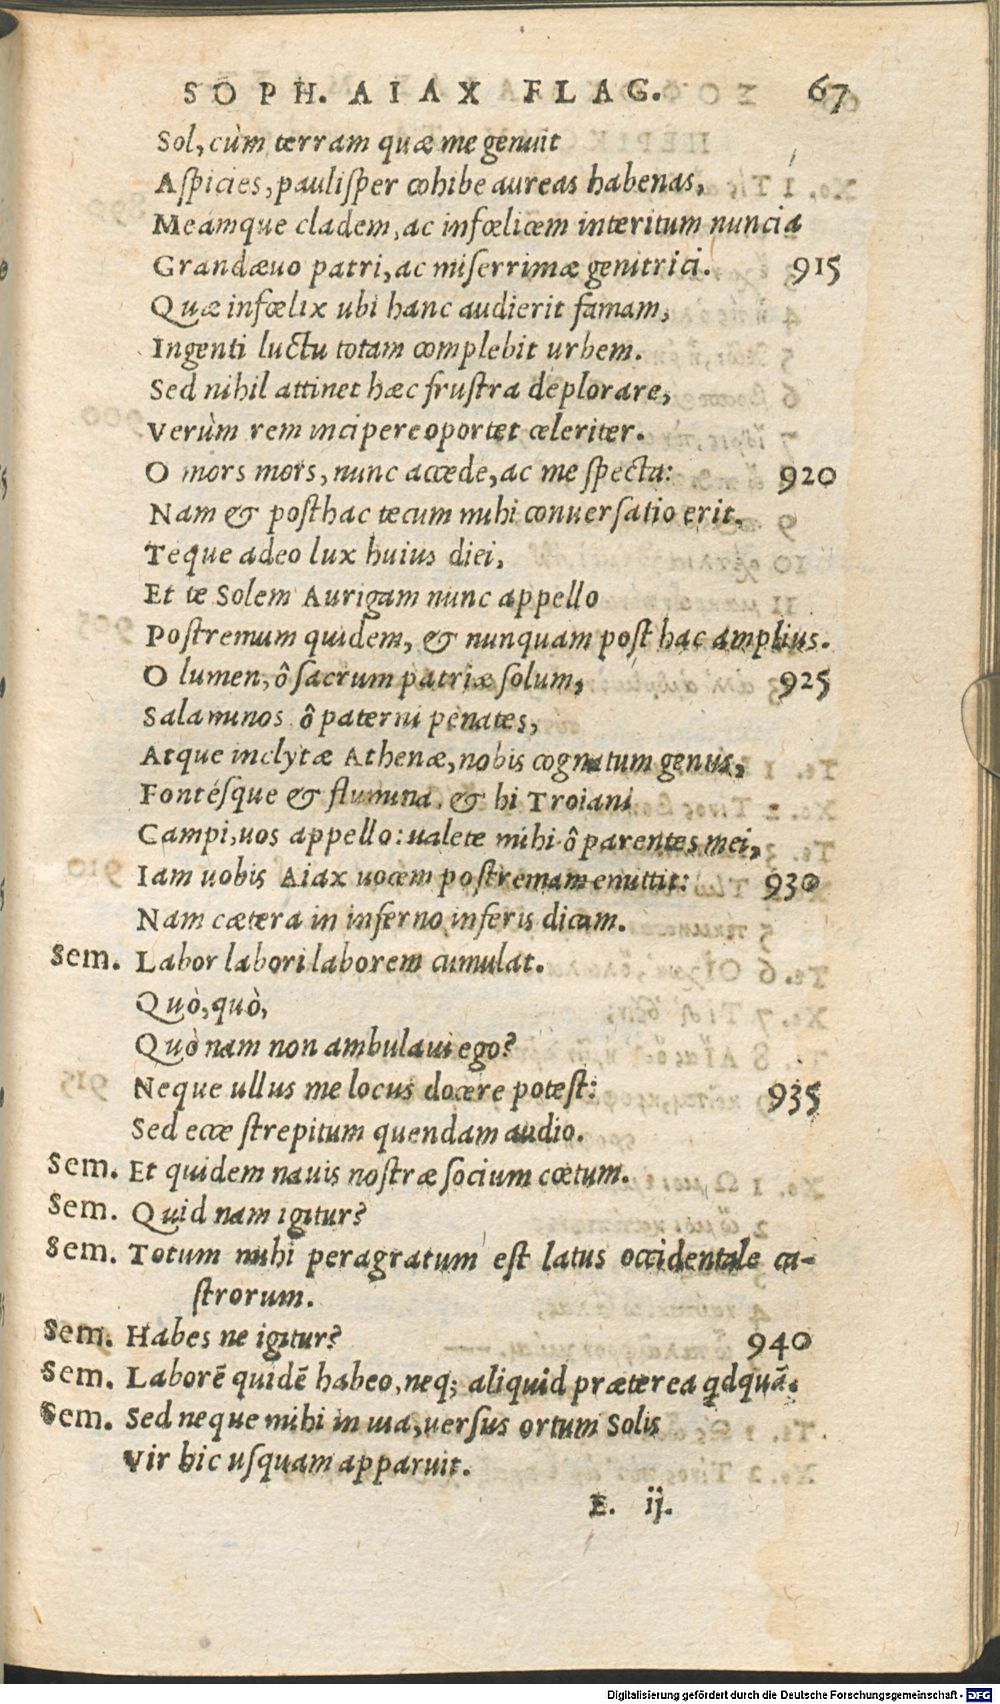 SOPH. AIAX FLAG. 67
Sol, cùm terram quæ me genuit
Aſpicies, pauliſper cohibe aureas habenas,
Meamque cladem, ac infœlicem interitum nuncia
Grandæuo patri, ac miſerrimæ genitrici. 915
Quæ infœlix ubi hanc audierit famam,
Ingenti luctu totam complebit urbem.
Sed nihil attinet hæc fruſtra deplorare,
Verùm rem incipere oportet celeriter.
O mors mors, nunc accede, ac me ſpecta: 920
Nam & poſthac tecum mihi conuerſatio erit,
Teque adeo lux huius diei,
Et te Solem Aurigam nunc appello
Poſtremum quidem, & nunquam poſt hac amplius.
O lumen, ô ſacrum patriæ ſolum, 925
Salaminos ô paterni penates,
Atque inclytæ Athenæ, nobis cognatum genus,
Fontésque & flumina, & hi Troiani
Campi, uos appello: ualete mihi ô parentes mei,
Iam uobis Aiax uocem poſtremam emittit: 930
Nam cætera in inferno inferis dicam.
Sem. Labor labori laborem cumulat.
Quò, quò,
Quò nam non ambulaui ego?
Neque ullus me locus docere poteſt: 935
Sed ecce ſtrepitum quendam audio.
Sem. Et quidem nauis noſtræ ſocium cœtum.
Sem. Quid nam igitur?
Sem. Totum mihi peragratum eſt latus occidentale ca-
ſtrorum.
Sem. Habes ne igitur? 940
Sem. Laborē quidē habeo, neq; aliquid præterea qdquā.
Sem. Sed neque mihi in uia, uerſus ortum Solis
Vir hic uſquam apparuit.
E. ij.
Digitalisierung gefördert durch die Deutsche Forschungsgemeinschaft - DFG